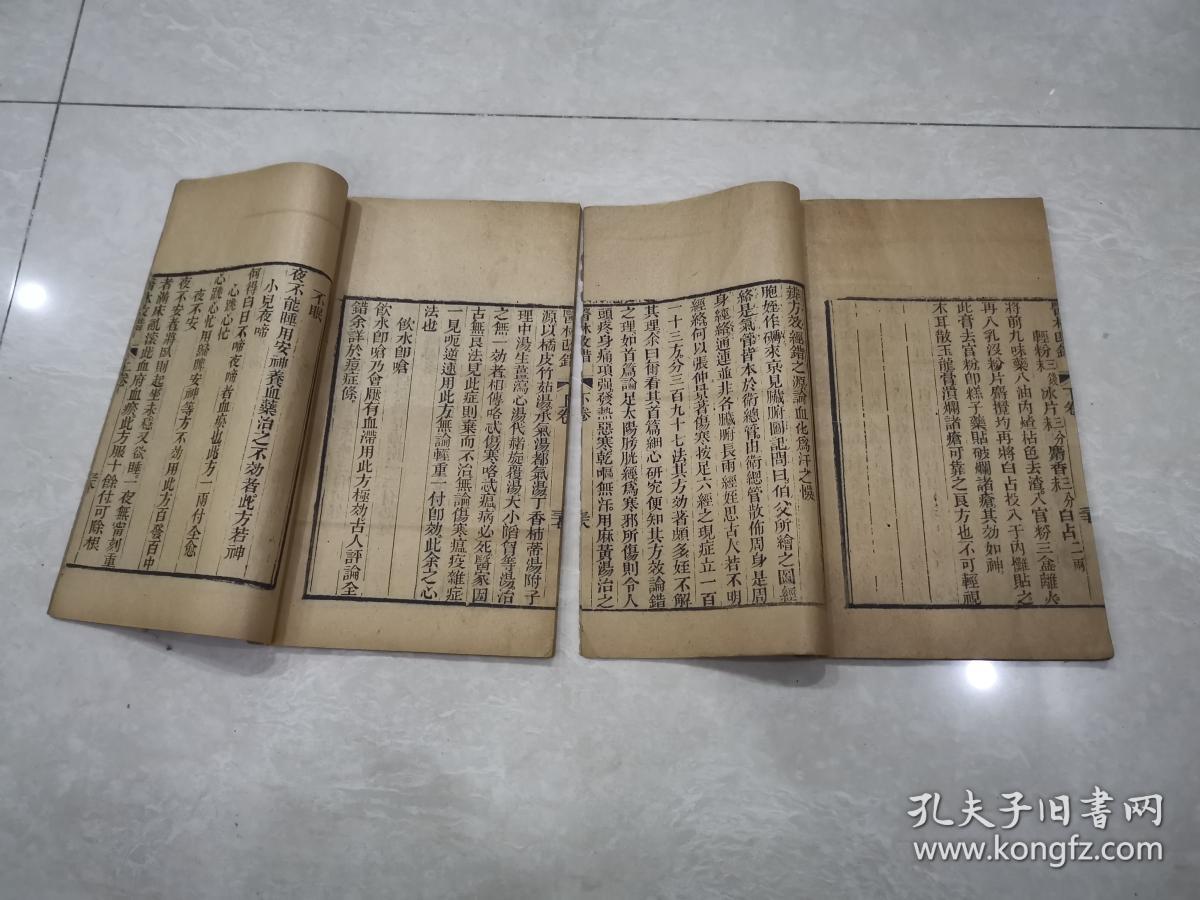 醫林改錯
上卷
法也
一見呃逆速用此方無論輕重一付卽効此余之心
古無良法見此症則棄而不治無論傷寒瘟疫雜症
之無一効者相傳咯忒傷寒咯忒瘟病必死醫家因
理中湯生薑瀉心湯代緒旋覆湯大小陷胷等湯治
源以橘皮竹茹湯承氣湯都氣湯丁香柿蒂湯附子
飲水卽嗆
飲水卽嗆乃會厭有血滯用此方極効古人評論全
錯余詳於痘症條
不眠
夜不能睡用安神養血藥治之不効者此方若神
小兒夜啼
何得白日不啼夜啼者血瘀也此方一兩付全愈
心跳心忙
心跳心忙用歸脾安神等方不効用此方百發百中
夜不安
夜不安者將臥則起坐未穩又欲睡一夜無甯刻重
者滿床亂滾此血府血瘀此方服十餘付可除根
醫林改錯
上卷
醫林改錯
下卷
輕粉三錢冰片三分麝香三分白占二兩
將前九味藥八油內煠枯色去渣入官粉三盒離火
再八乳沒粉片麝攪均再將白占投入于內攤貼之
此膏去官粉卽糕子藥貼破爛諸瘡其効如神
木耳散玉龍膏潰爛諸瘡可靠之良方也不可輕視
辨方效經錯之源論血化為汗之悞
胞姪作礪來京見臟腑圖記問曰伯父所繪之圖經
絡是氣管皆本於衛總管由衛總管散佈周身是周
身經絡通連並非各臟腑長兩經姪思古人若不明
經絡何以張仲景著傷寒按足六經之現症立一百
一十三方分三百九十七法其方効者頗多姪不解
其理余曰爾看其首篇細心研究便知其方效論錯
之理如首篇論足太陽膀胱經為寒邪所傷則令人
頭疼身痛項强發熱惡寒乾嘔無汗用麻黃湯治之
醫林改錯
下卷
孔夫子旧书网
www.kongfz.com